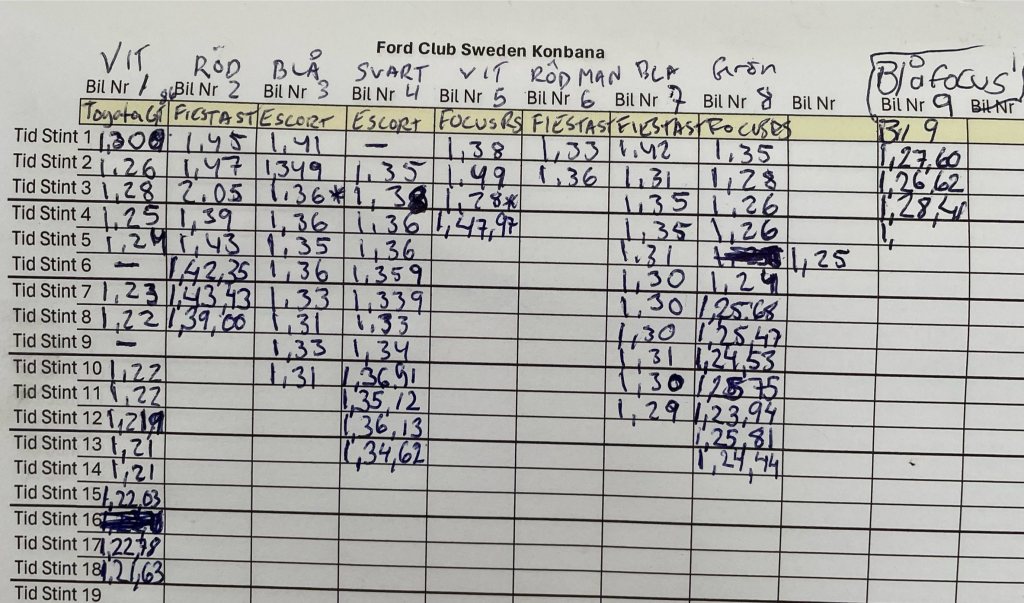 Ford Club Sweden Konbana
VIT RÖD BLÅ SVART VIT RÖD MAN BLA Grön Blå focus
Bil Nr 1 Bil Nr 2 Bil Nr 3 Bil Nr 4 Bil Nr 5 Bil Nr 6 Bil Nr 7 Bil Nr 8 Bil Nr Bil Nr 9 Bil Nr
Toyota FIESTAST ESCORT ESCORT FOCUSRS FIESTAST FIESTAST FOCUSRS Bil 9
Tid Stint 1 1,300 1,45 1,41 – 1,38 1,33 1,42 1,35 1,27,60
Tid Stint 2 1,26 1,47 1,349 1,35 1,49 1,36 1,31 1,28 1,26,62
Tid Stint 3 1,28 2.05 1.36* 1,38 1,28* 1,35 1,26 1,28,41
Tid Stint 4 1,25 1,39 1,36 1,36 1,47,97 1,35 1,26 1,
Tid Stint 5 1,24 1,43 1,35 1,36 1.31 1,25
Tid Stint 6 – 1,42,35 1,36 1,359 1,30 1,24
Tid Stint 7 1,23 1,43,43 1,33 1,339 1,30 1,25.68
Tid Stint 8 1,22 1,39,00 1,31 1,33 1,30 1,25,47
Tid Stint 9 – 1,33 1,34 1,31 1,24,53
Tid Stint 10 1,22 1,31 1,36,91 1,30 1,25 75
Tid Stint 11 1,22 1,35,12 1,29 1,23,94
Tid Stint 12 1,219 1,36,13 1,25,81
Tid Stint 13 1,21 1,34,62 1,24,44
Tid Stint 14 1,21
Tid Stint 15 1,22,03
Tid Stint 16
Tid Stint 17 1,22,78
Tid Stint 18 1,21,63
Tid Stint 19